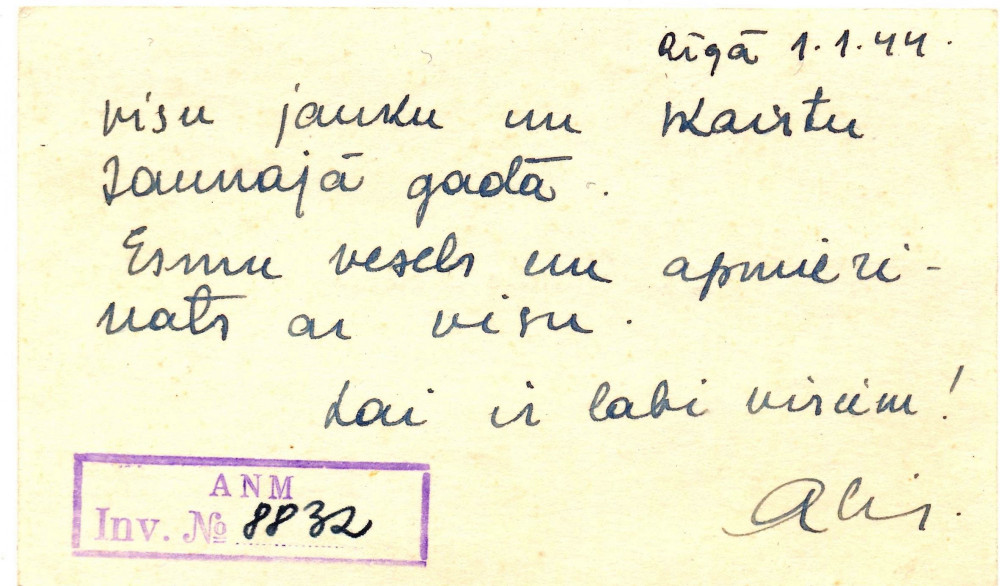 Rīgā 1.1.44.
visu jauku un skaistu
Jaunajā gadā.
Esmu vesels un apmieri-
nāts ar visu.
Lai ir labi visiem!
Alis.
ANM
Inv. № 8832